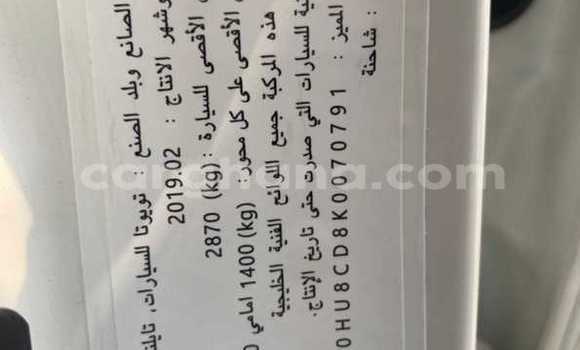 الصانع وبلد الصنع : تويوتا للسيارات, تايلند
وشهر الانتاج : 2019.02
الأقصى للسيارة : (kg) 2870
الأقصى على كل محور: (kg) 1400 امامي
هذه المركبة جميع اللوائح الفنية الخليجية
للسيارات التي صدرت حتى تاريخ الإنتاج.
المميز : 0HU8CD8K0070791
: شاحنة
carghana.com